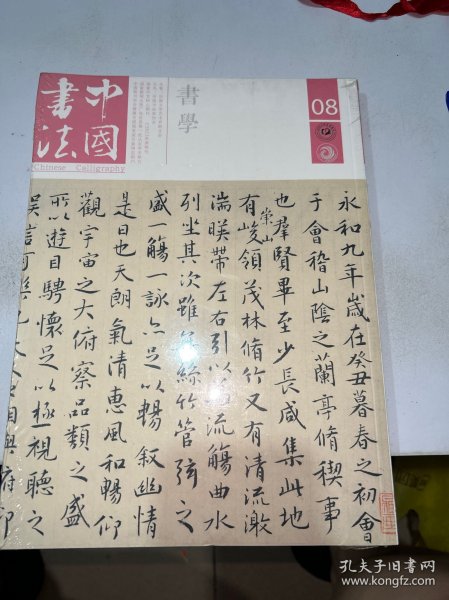 中國書法
Chinese Calligraphy
書學
08
永和九年歲在癸丑暮春之初會
于會稽山陰之蘭亭脩稧事
也羣賢畢至少長咸集此地
有峻領茂林脩竹又有清流激
崇山
湍暎帶左右引以流觴曲水
列坐其次雖無絲竹管弦之
盛一觴一詠亦足以暢叙幽情
是日也天朗氣清惠風和暢仰
觀宇宙之大俯察品類之盛
所以遊目騁懷足以極視聽之
孔夫子旧书网
www.kongfz.com